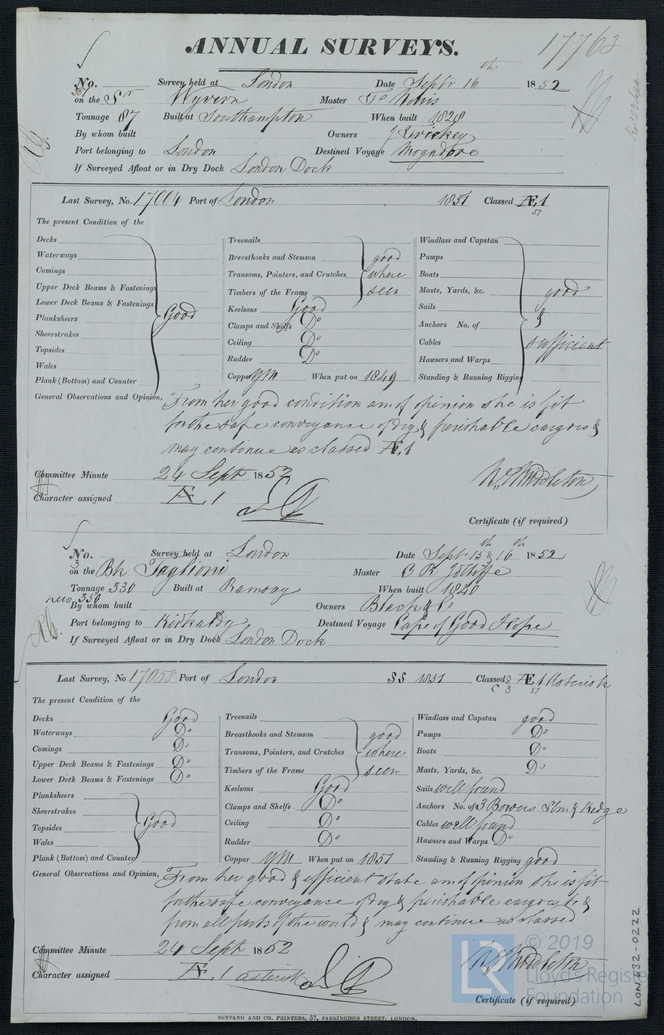 ANNUAL SURVEYS.
17763
No. Survey held at London Date Septr 16th 1852
on the Sr Wyvern Master
Tonnage 87 Built at Southampton When built 1828
By whom built Owners
Port belonging to London Destined Voyage Mogadore
If Surveyed Afloat or in Dry Dock London Dock
Last Survey, No. 17004 Port of London 1851 Classed Æ 1
51
The present Condition of the
Decks
Waterways
Comings
Upper Deck Beams & Fastenings
Lower Deck Beams & Fastenings
Planksheers
Sheerstrakes
Topsides
Wales
Plank (Bottom) and Counter
Good
Treenails
Breasthooks and Stemson
Transoms, Pointers, and Crutches
Timbers of the Frame
good where seen
Keelsons Good
Clamps and Shelfs Do
Ceiling Do
Rudder Do
Copper YM When put on 1849
Windlass and Capstan
Pumps
Boats
Masts, Yards, &c.
Sails
Anchors No. of
Cables
Hawsers and Warps
Standing & Running Rigging
good & sufficient
General Observations and Opinion, From her good condition am of opinion she is fit
for the safe conveyance of dry & perishable cargoes &
may continue as classed Æ 1
Committee Minute 24 Sept 1852
Character assigned Æ 1
Wm Middleton
Certificate (if required)
No. Survey held at London Date Septr 15th & 16th 1852
on the Bk Taglioni Master C R Jolliffe
Tonnage 330 Built at Ramsay When built 1840
new 350
By whom built Owners Black & Co
Port belonging to Kirkaldy Destined Voyage Cape of Good Hope
If Surveyed Afloat or in Dry Dock London Dock
Last Survey, No 17058 Port of London SS 1851 Classed Æ 1 Asterisk
51
The present Condition of the
Decks Good
Waterways Do
Comings Do
Upper Deck Beams & Fastenings Do
Lower Deck Beams & Fastenings Do
Planksheers
Sheerstrakes
Topsides
Wales
Plank (Bottom) and Counter
Good
Treenails
Breasthooks and Stemson
Transoms, Pointers, and Crutches
Timbers of the Frame
good where seen
Keelsons Good
Clamps and Shelfs Do
Ceiling Do
Rudder Do
Copper YM When put on 1851
Windlass and Capstan good
Pumps Do
Boats Do
Masts, Yards, &c. Do
Sails well found
Anchors No. of 3 Bowers Stm & Kedge
Cables well found
Hawsers and Warps Do
Standing & Running Rigging good
General Observations and Opinion, From her good & efficient state am of opinion she is fit
for the safe conveyance of dry & perishable cargoes to &
from all parts of the world & may continue as classed
Committee Minute 24 Sept 1852
Character assigned Æ 1 asterisk
Wm Middleton
Certificate (if required)
SEYFANG AND CO. PRINTERS, 57, FARRINGDON STREET, LONDON.
LR
© 2019
Lloyd's Register
Foundation
LON 732-0222